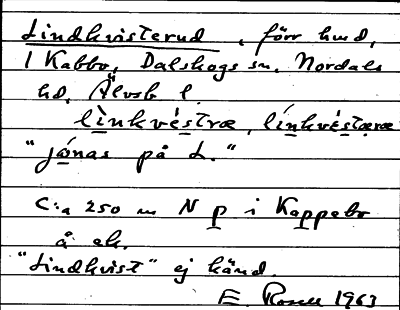 Lindkvisterud, förr hmd,
1 Kabbo, Dalskogs sn. Nordals
hd, Älvsb l.
lìnkvéstræ, línkvéstæræ
"jónas på L."
C:a 250 m N p i Kappebo
å ek.
"Lindkvist" ej känd.
E. Rosell 1963